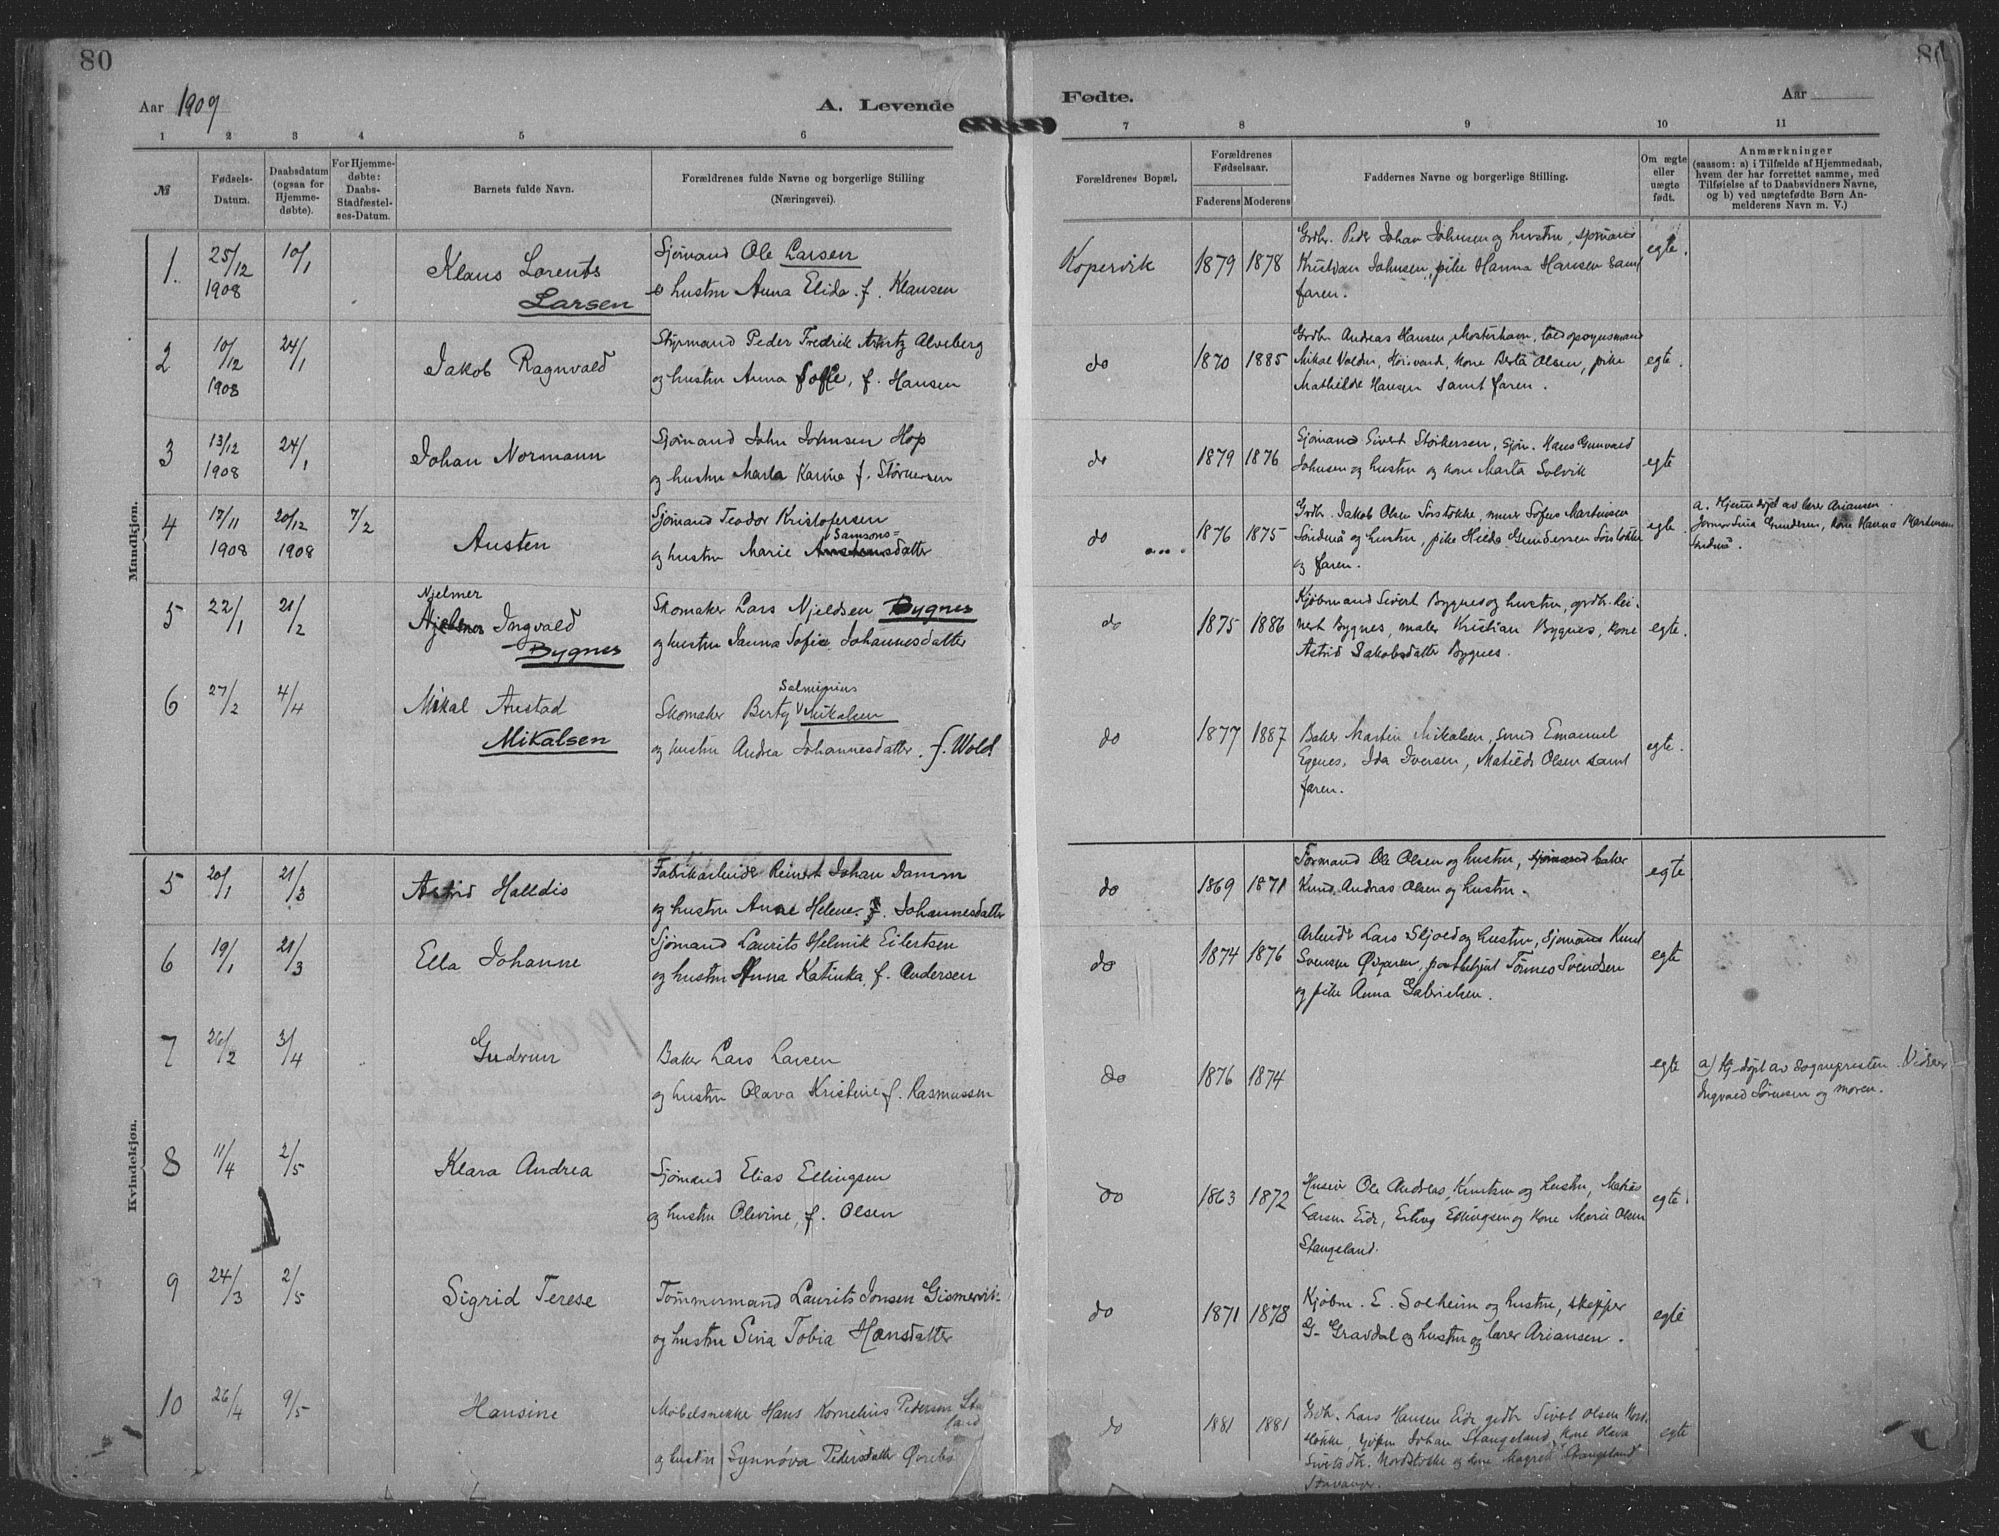 80
80
Aar 1909
A. Levende
Fødte.
Aar
1 2 3 4 5 6
7 8 9 10 11
№
Fødsels-
Datum.
Daabsdatum
(ogsaa for
Hjemme-
døbte).
For Hjemme-
døbte:
Daabs-
Stadfæstel-
ses-Datum.
Barnets fulde Navn.
Forældrenes fulde Navne og borgerlige Stilling
(Næringsvei).
Forældrenes Bopæl.
Forældrenes
Fødselsaar.
Faderens Moderens
Faddernes Navne og borgerlige Stilling.
Om ægte
eller
uægte
født.
Anmærkninger
(saasom: a) i Tilfælde af Hjemmedaab,
hvem der har forrettet samme, med
Tilføielse af to Daabsvidners Navne,
og b) ved uægtefødte Børn An-
melderens Navn m. V.)
Mandkjøn.
1. 25/12 1908 10/1
Klaus Lorents
Larsen
Sjømand Ole Larsen
o hustru Anna Elida f. Klausen
Kopervik 1879 1878
Grdbr. Peder Johan Johnsen og hustru, sjømand
Kristian Johnsen, pike Hanna Hansen samt
faren.
egte.
2 10/12 1908 24/1
Jakob Ragnvald
Styrmand Peder Fredrik Alveberg
og hustru Anna Sofie, f. Hansen
do 1870 1885
Grdbr. Andreas Hansen, Mosterhavn, toldopsynsmand
Mikal Valder, kone Berta Olsen, pike
Mathilde Hansen samt faren.
egte.
3 13/12 1908 24/1
Johan Normann
Sjømand John Johnsen Hop
og hustru Marta Karine f. Størkersen
do 1879 1876
Sjømand Sivert Størkersen, sjøm. Hans Gunvald
Johnsen og hustru og kone Marta Solvik
egte
4 17/11 1908 20/12 1908 7/2
Austen
Sjømand Teodor Kristofersen
Samsons=
og hustru Marie Austensdatter
do 1876 1875
Grdbr. Jakob Olsen Sørstokke, murer Sofus Martinsen
og hustru, pike Hilda Gundersen Sørstokke
og faren.
egte.
a. Hjemmedøpt av lærer Ariansen.
kone Hanna Martinsen
5 22/1 21/2
Njelmer
Ingvald
Bygnes
Skomaker Lars Njeldsen Bygnes
og hustru Janna Sofie Johannesdatter
do 1875 1886
Kjøbmand Sivert Bygnes og hustru, grdbr. Lei-
nert Bygnes, maler Kristian Bygnes, kone
Astrid Jakobsdatter Bygnes.
egte.
6 27/2 4/4
Mikal Austad
Mikalsen
Selminius
Skomaker Mikalsen
og hustru Andrea Johannesdatter. f. Wold
do 1877 1887
Baker Martin Mikalsen, smed Emanuel
Eggnes, Ida Iversen, Matilde Olsen samt
faren.
egte.
Kvindekjøn.
5 20/1 21/3
Astrid Halldis
Fabrikarbeider Reinert Johan Damm
og hustru Anne Helene f. Johannesdatter
do 1869 1871
Formand Ole Olsen og hustru, sjømand baker
Knud Andras Olsen og hustru.
egte
6 19/1 21/3
Ella Johanne
Sjømand Laurits Helmik Eilertsen
og hustru Anna Katinka f. Andersen
do 1874 1876
Arbeider Lars Skjold og hustru, Sjømand Knut
Svensen Øygaren, postbetjent Tønnes Svendsen
og pike Anna Gabrielsen.
egte
7 26/2 3/4
Gudrun
Baker Lars Larsen
og hustru Olava Kristine f. Rasmussen
do 1876 1874
egte
a) Hj. døpt av sognepresten. Vidner
Ingvald Sørensen og moren.
8 11/4 2/5
Klara Andrea
Sjømand Elias Ellingsen
og hustru Olevine, f. Olsen
do 1863 1872
Huseier Ole Andreas Knutsen og hustru, Matias
Larsen Eide, Erling Ellingsen og kone Marie Olsen
Stangeland.
egte.
9 24/3 2/5
Sigrid Terese
Tømmermand Laurits Jonsen Gismervik
og hustru Sina Tobia Hansdatter
do 1871 1878
Kjøbm. E. Solheim og hustru, skipper
G. Gravdal og hustru og lærer Ariansen.
egte
10 26/4 9/5
Hansine
Møbelsnekker Hans Kornelius Pedersen
land
og hustru Synnøva Pedersdatter Øvrebø
do 1881 1881
Grdbr. Lars Hansen Eide, grdbr Sivert Olsen Nord-
stokke, Johan Stangeland, kone Olava
Sivertsdtr. Nordstokke og kone Magrete Stangeland
Stavanger.
egte